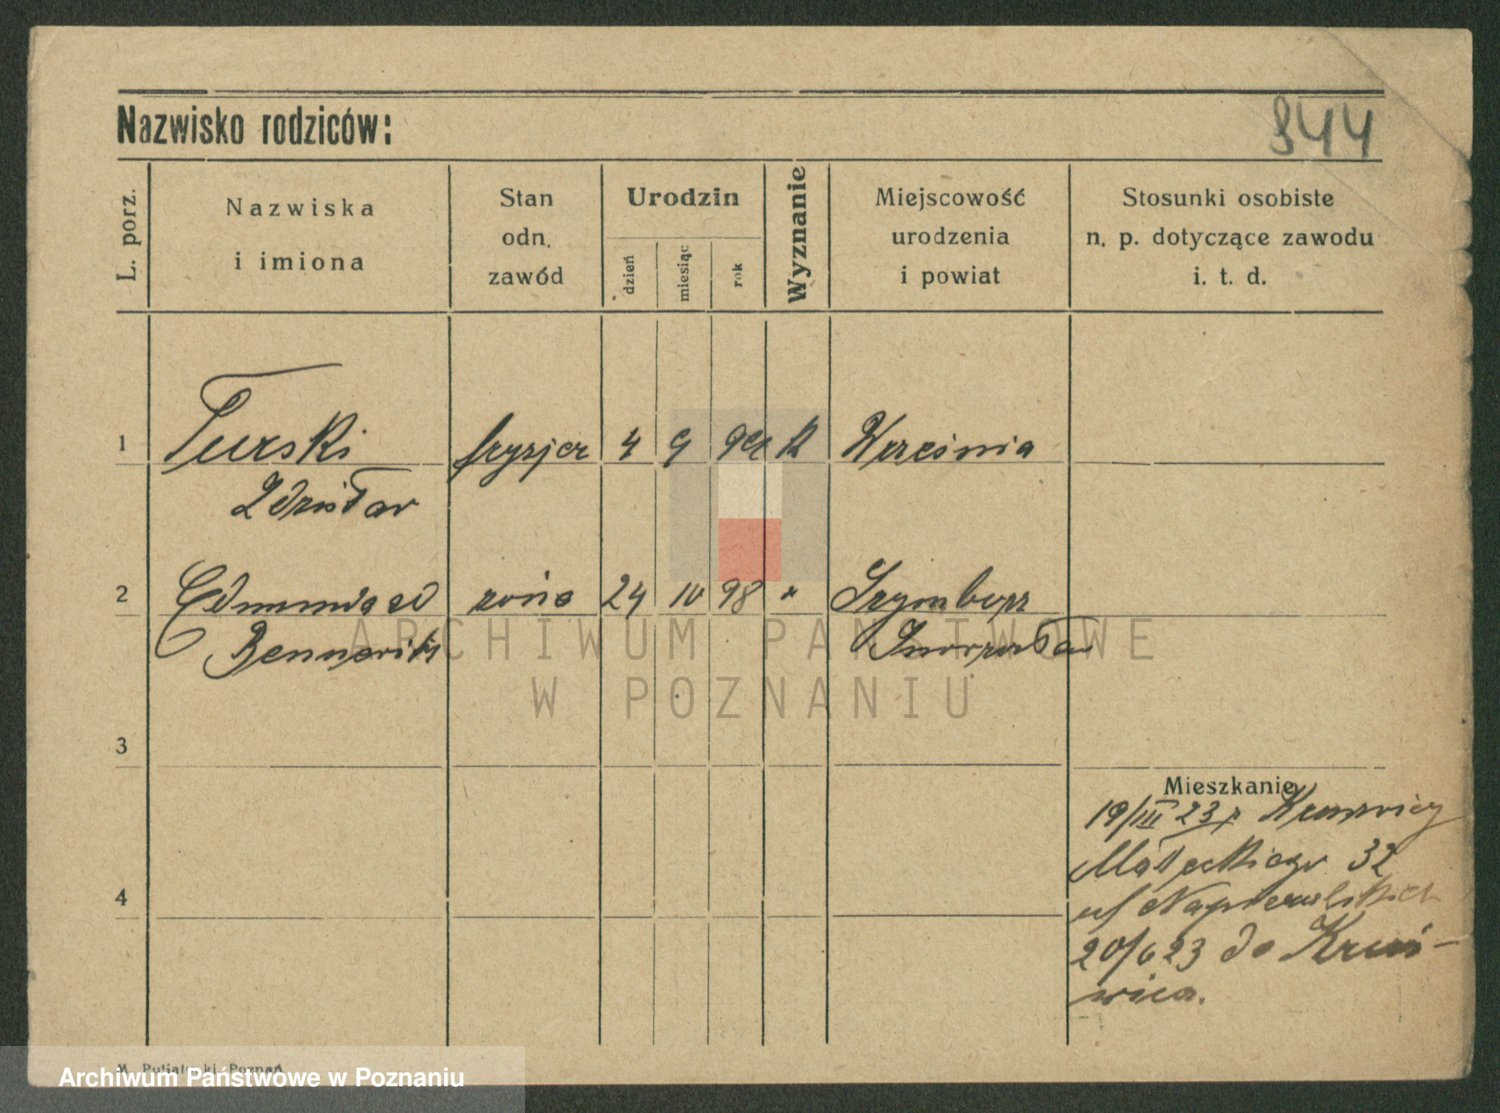 Nazwisko rodziców:
844
L. porz.
Nazwiska
i imiona
Stan
odn.
zawód
Urodzin
dzień
miesiąc
rok
Wyznanie
Miejscowość
urodzenia
i powiat
Stosunki osobiste
n. p. dotyczące zawodu
i. t. d.
1
Turski
fryzjer
4
9
K
Września
Zdzisław
2
żona
24
10
98
"
Szymborz
3
Mieszkanie
19/III 23 r
Małeckiego 32
ul
4
20/6 23 do Krusz-
wica.
ARCHIWUM PAŃSTWOWE
W POZNANIU
Poznań
Archiwum Państwowe w Poznaniu